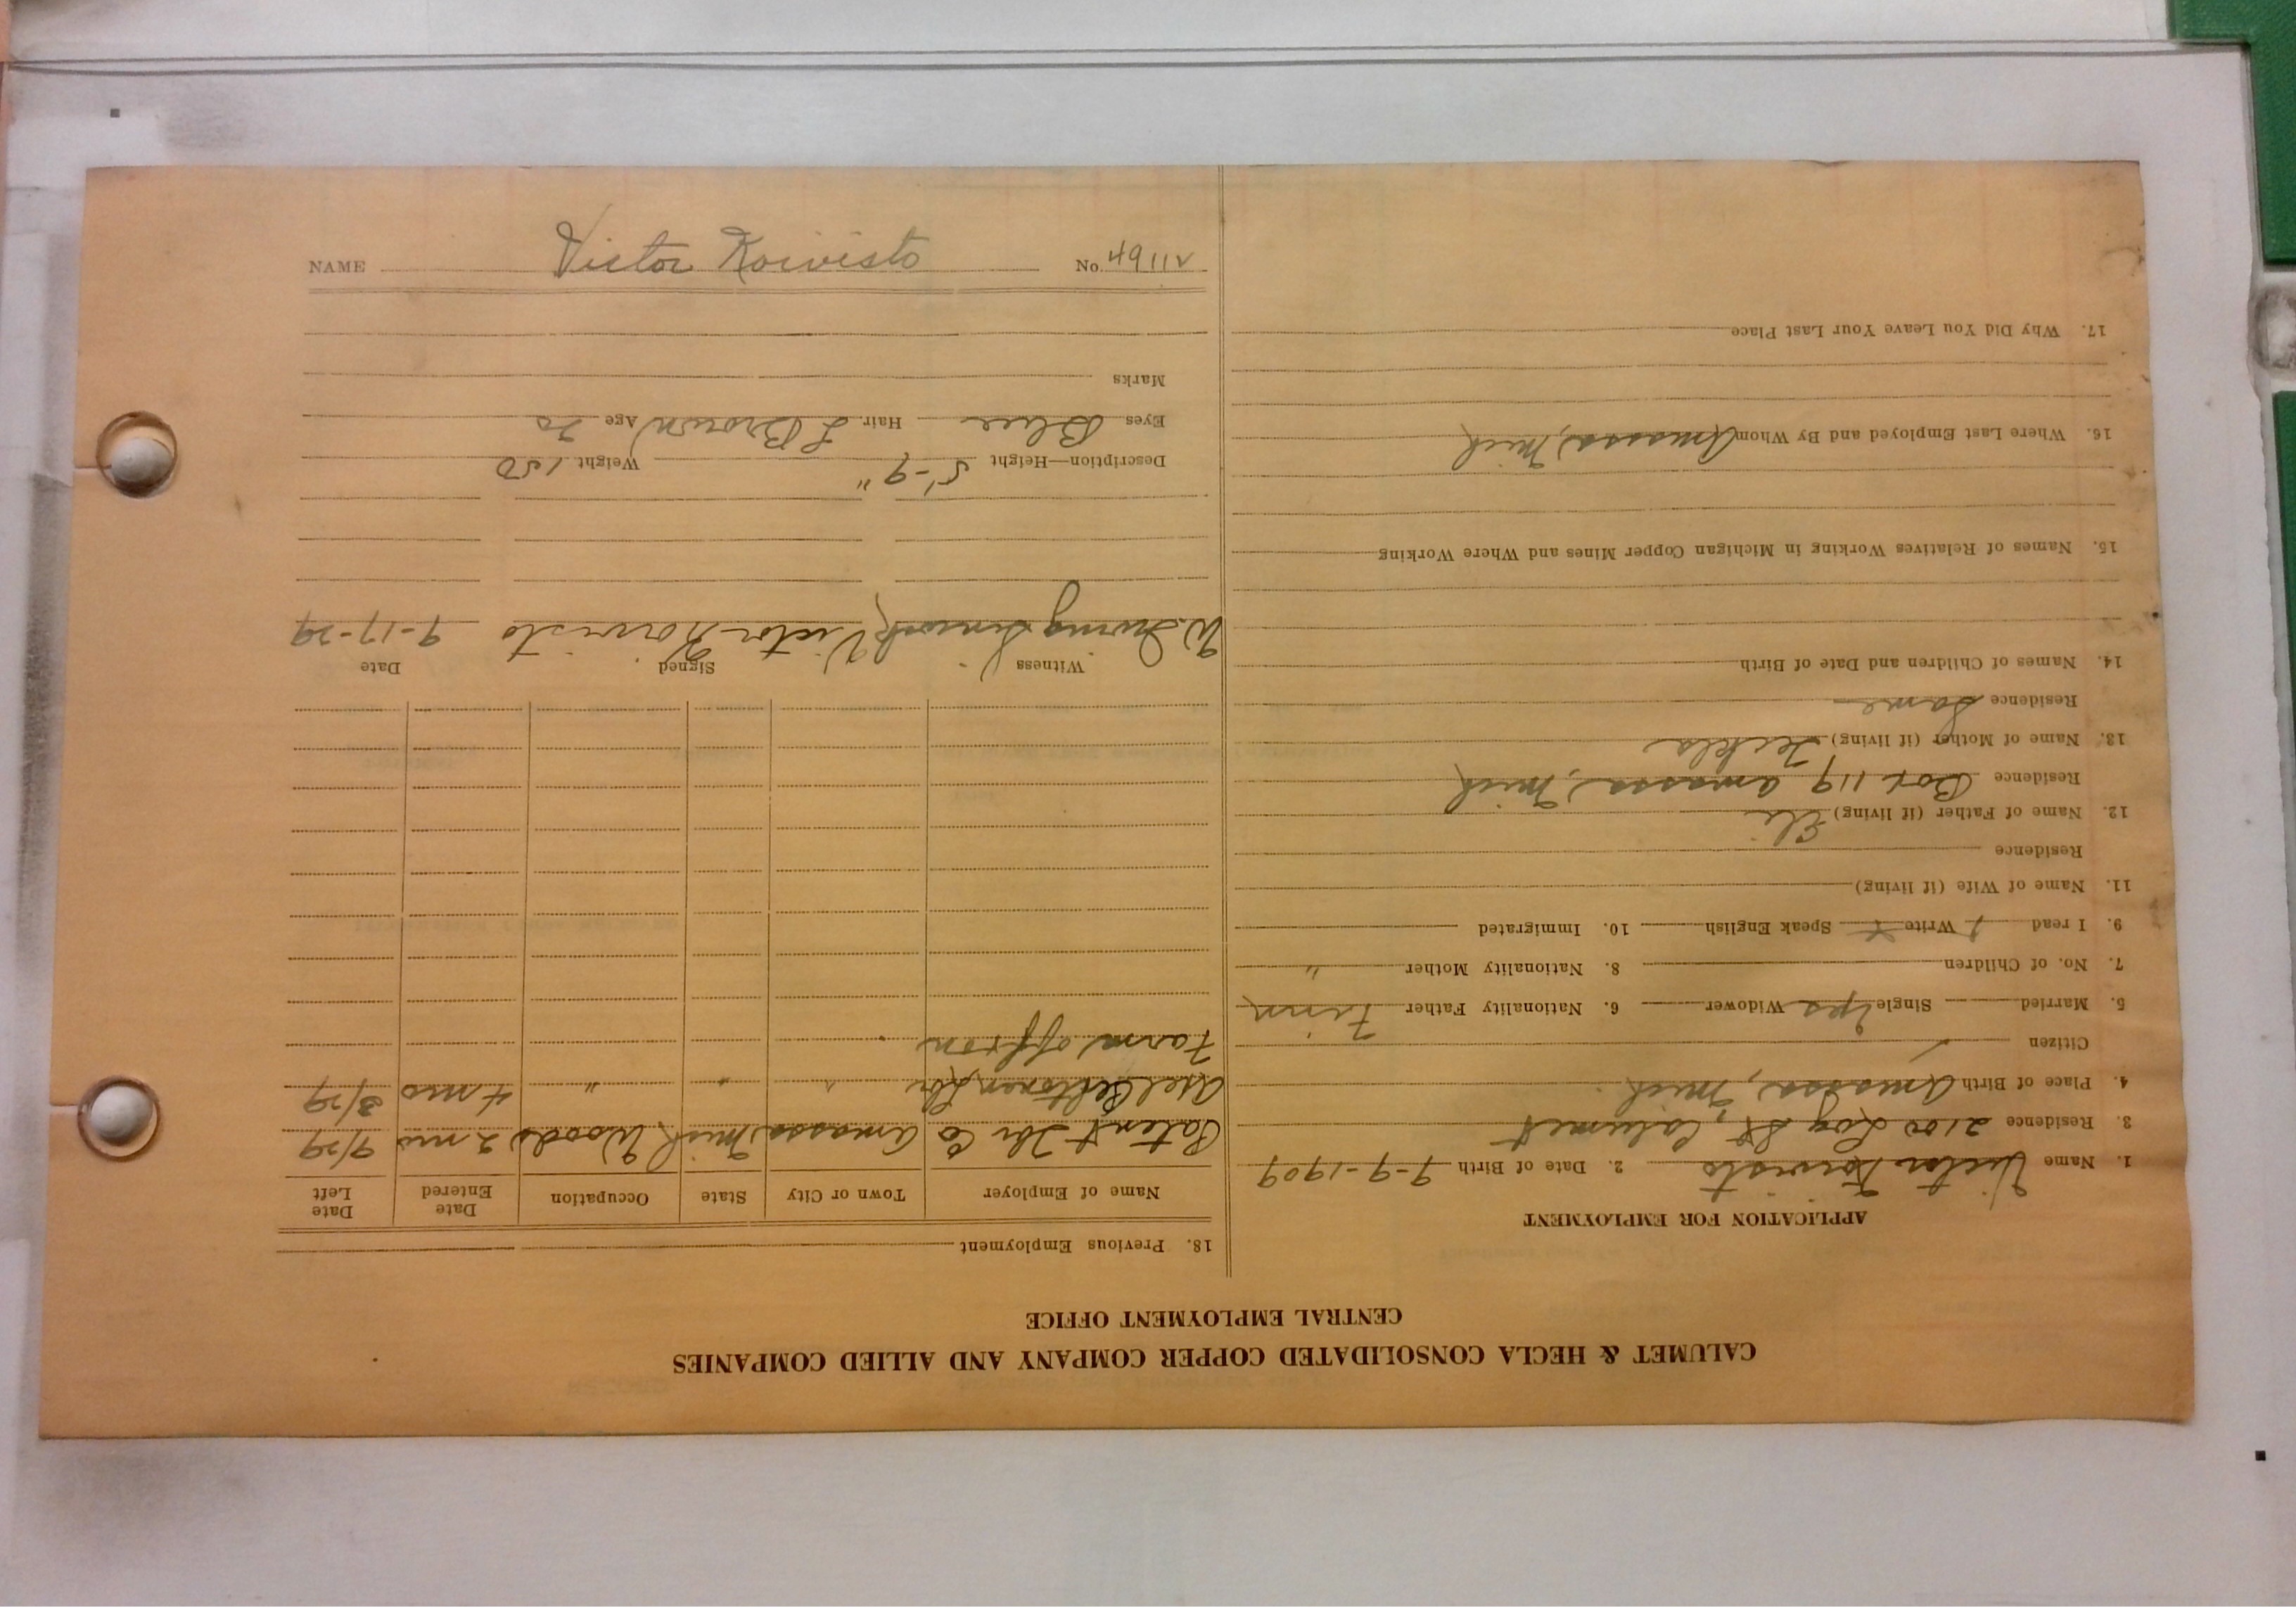 CALUMET & HECLA CONSOLIDATED COPPER COMPANY AND ALLIED COMPANIES
CENTRAL EMPLOYMENT OFFICE
APPLICATION FOR EMPLOYMENT
1. Name Victor Koivisto 2. Date of Birth 9-9-1909
3. Residence 2100 Log St, Calumet
4. Place of Birth Amassa, Mich.
Citizen ✓
5. Married Single Yes Widower 6. Nationality Father Finn
7. No. of Children 8. Nationality Mother "
9. I read Write Speak English 10. Immigrated
11. Name of Wife (if living)
Residence
12. Name of Father (if living) Eli
Residence Box 119 Amassa, Mich
13. Name of Mother (if living) Teckla
Residence Same
14. Names of Children and Date of Birth
15. Names of Relatives Working in Michigan Copper Mines and Where Working
16. Where Last Employed and By Whom Amassa, Mich
17. Why Did You Leave Your Last Place
18. Previous Employment
Name of Employer Town or City State Occupation Date Entered Date Left
Patent Lbr Co Amassa Mich Woods 2 mos 9/29
Lbr " " " 4 mos 3/29
Farm off & on
Witness Signed Date
W. Irving Victor Koivisto 9-17-29
Description—Height 5'-9" Weight 150
Eyes Blue Hair L Brown Age 20
Marks
NAME Victor Koivisto No. 49112